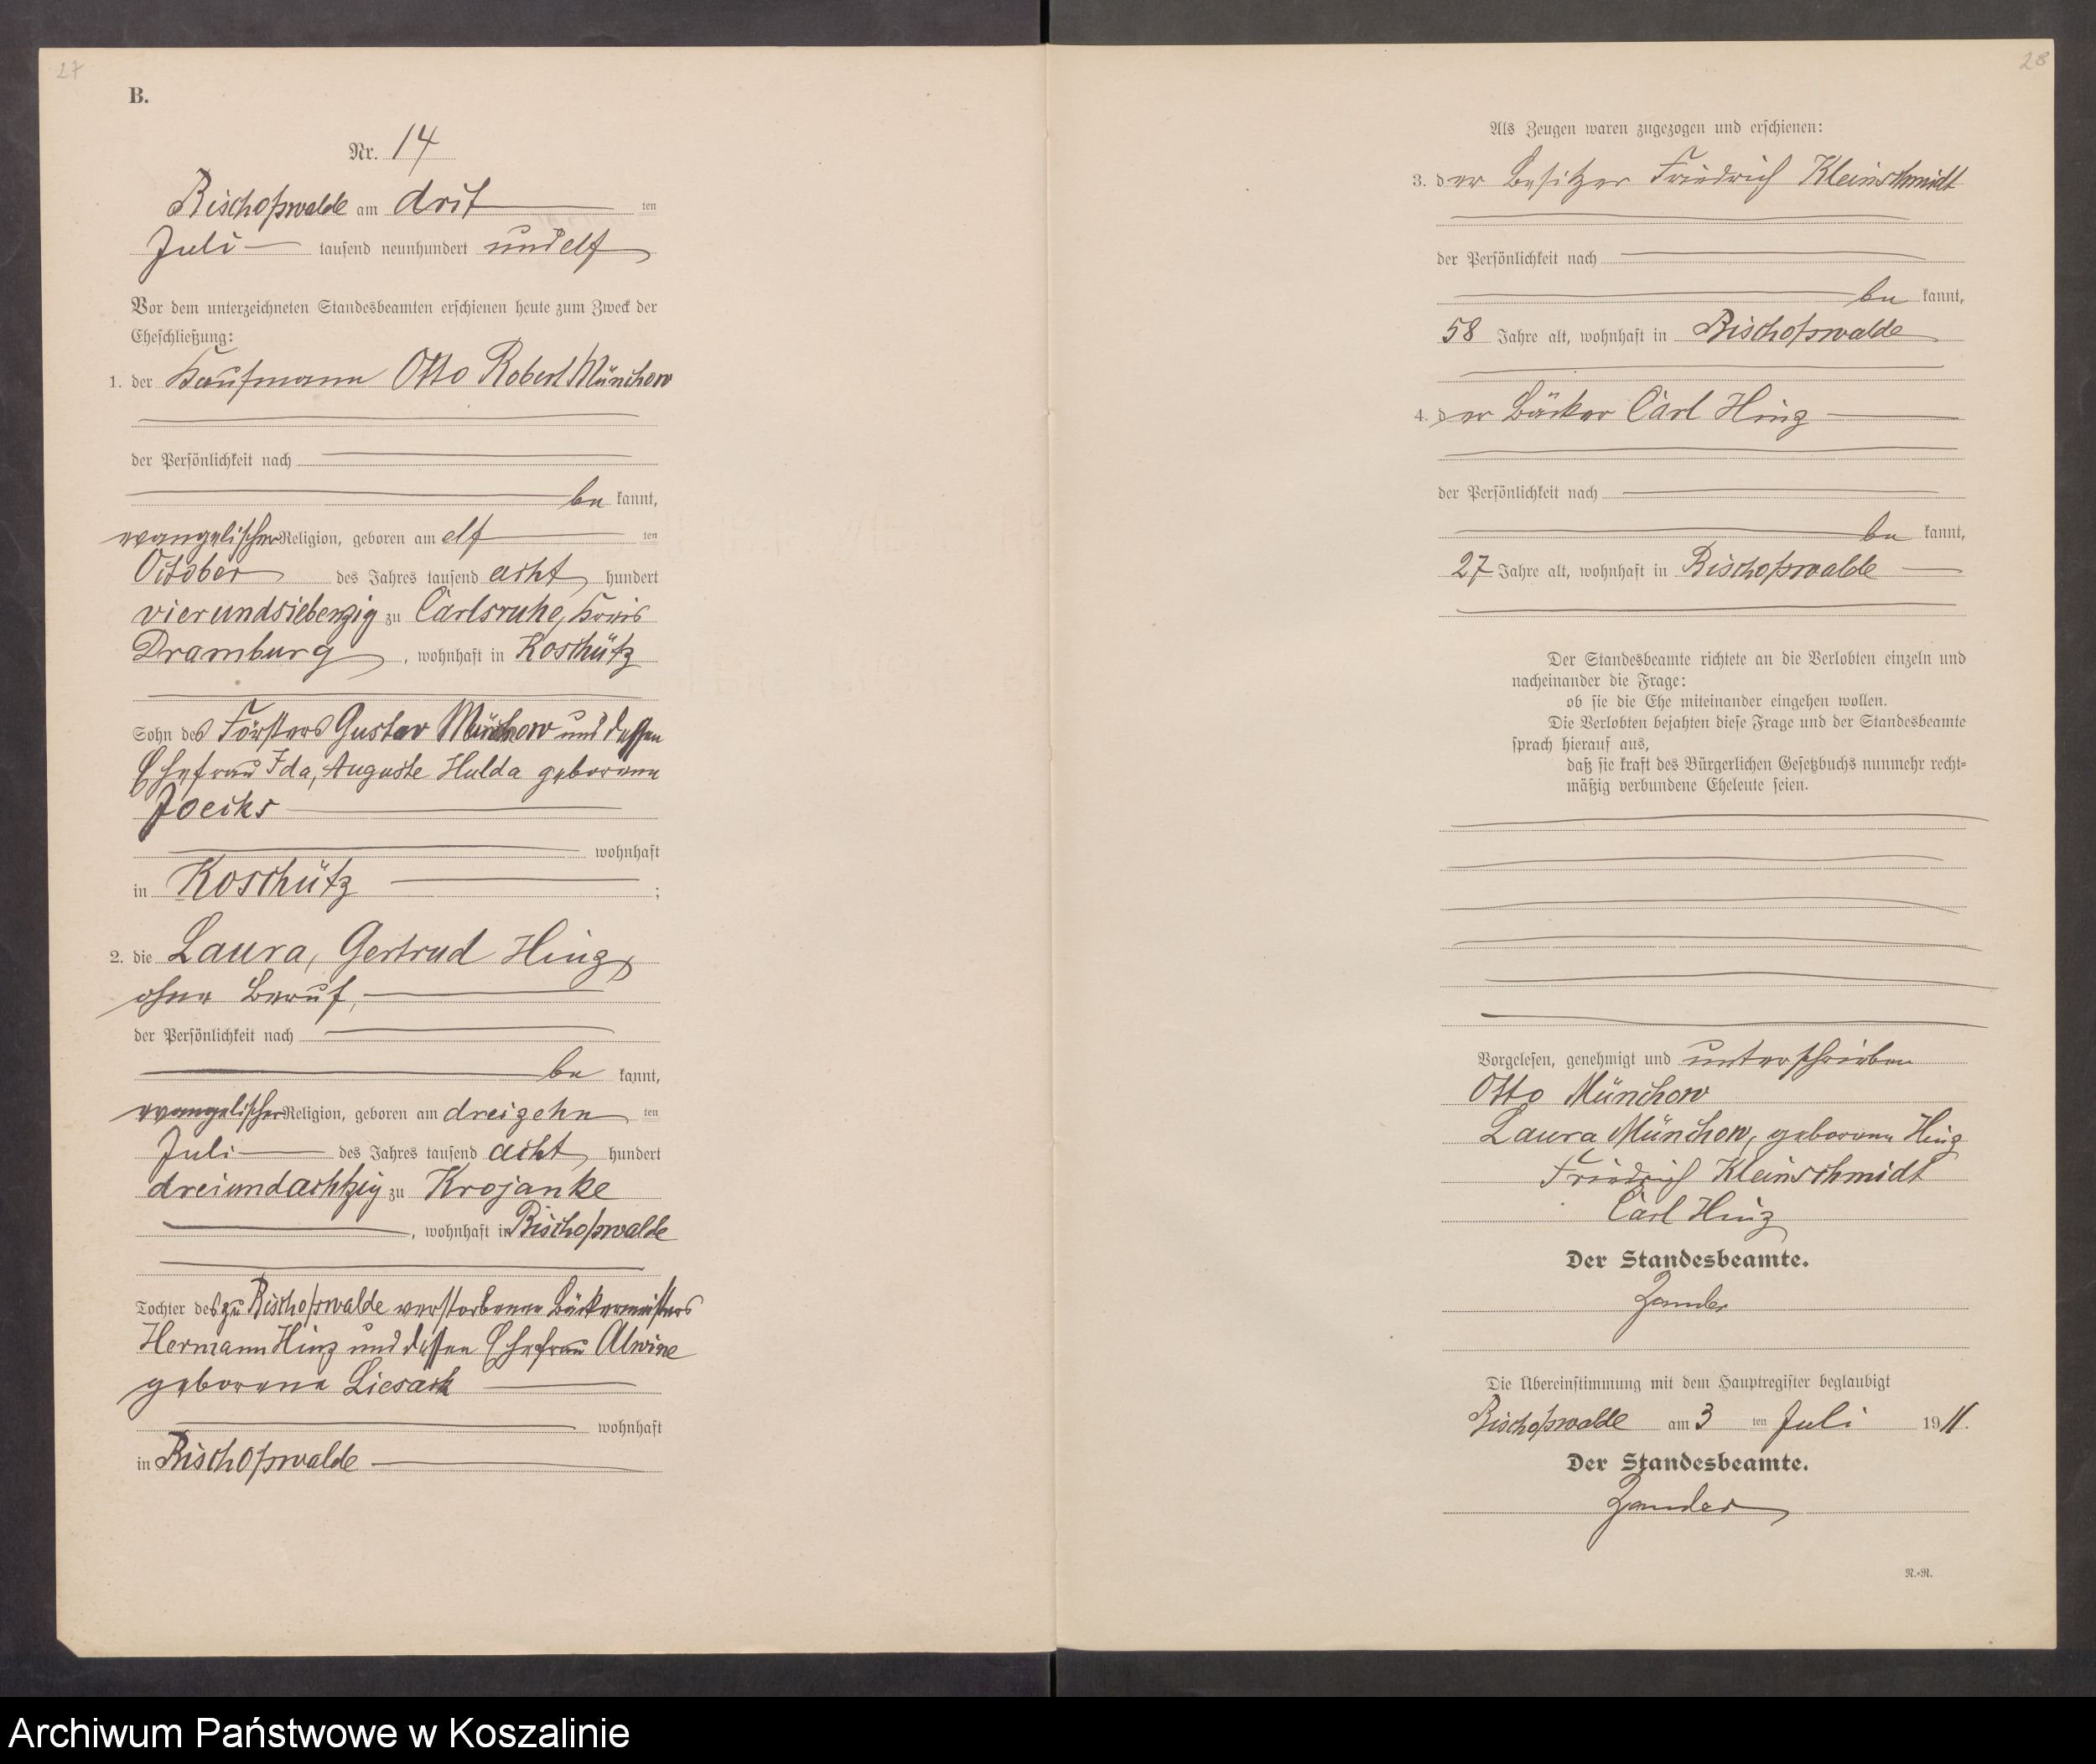 27
B.
Nr. 14
Bischofswalde am drit ten
Juli tausend neunhundert und elf
Vor dem unterzeichneten Standesbeamten erschienen heute zum Zweck der
Eheschließung:
1. der Kaufmann Otto Robert Münchow
der Persönlichkeit nach
be kannt,
evangelischer Religion, geboren am elf ten
October des Jahres tausend acht hundert
vierundsiebenzig zu Carlsruhe, Kreis
Dramburg, wohnhaft in Koschütz
Sohn des Försters Gustav Münchow und dessen
Ehefrau Ida, Auguste Hulda geborene
Joecks
wohnhaft
in Koschütz ;
2. die Laura, Gertrud Hinz,
ohne Beruf,
der Persönlichkeit nach
be kannt,
evangelischer Religion, geboren am dreizehn ten
Juli des Jahres tausend acht hundert
dreiundachtzig zu Krojanke
, wohnhaft in Bischofswalde
Tochter des zu Bischofswalde verstorbenen Bäckermeisters
Hermann Hinz und dessen Ehefrau Alwine
geborene Liesack
wohnhaft
in Bischofswalde
28
Als Zeugen waren zugezogen und erschienen:
3. der Besitzer Friedrich Kleinschmidt
der Persönlichkeit nach
be kannt,
58 Jahre alt, wohnhaft in Bischofswalde
4. der Bäcker Carl Hinz
der Persönlichkeit nach
be kannt,
27 Jahre alt, wohnhaft in Bischofswalde
Der Standesbeamte richtete an die Verlobten einzeln und
nacheinander die Frage:
ob sie die Ehe miteinander eingehen wollen.
Die Verlobten bejahten diese Frage und der Standesbeamte
sprach hierauf aus,
daß sie kraft des Bürgerlichen Gesetzbuchs nunmehr recht=
mäßig verbundene Eheleute seien.
Vorgelesen, genehmigt und unterschrieben
Otto Münchow
Laura Münchow, geborene Hinz
Friedrich Kleinschmidt
Carl Hinz
Der Standesbeamte.
Zander
Die Übereinstimmung mit dem Hauptregister beglaubigt
Bischofswalde am 3 ten Juli 1911.
Der Standesbeamte.
Zander
N.=R.
Archiwum Państwowe w Koszalinie